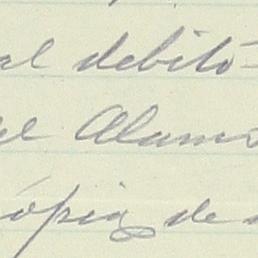 al debitó
el Alamo
ópia de